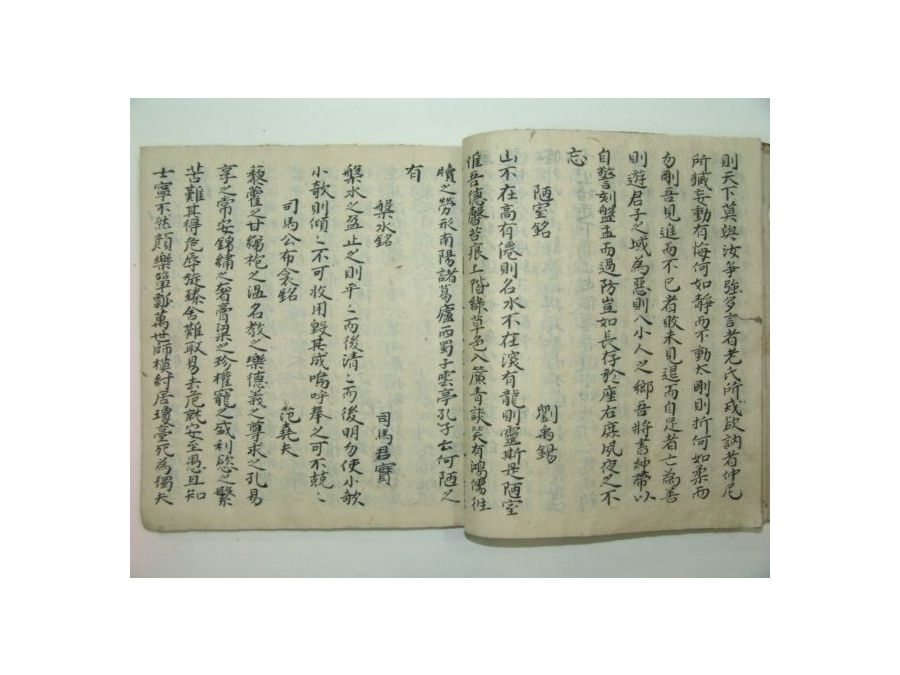 則天下莫與汝爭強多言者老氏所戎欲訥者仲尼
所臧妄動有悔何如靜而不動太剛則折何如柔而
勿剛吾見進而不已者敗未見退而自足者亡為善
則遊君子之域為惡則入小人之鄉吾將書紳帶以
自警刻盤盂而過防豈如長存於座右庶夙夜之不
忘
陋室銘 劉禹錫
山不在高有僊則名水不在深有龍則靈斯是陋室
惟吾德馨苔痕上階綠草色入簾青談笑有鴻儒往
牘之勞形南陽諸葛廬西蜀子雲亭孔子云何陋之
有
槃水銘 司馬君實
槃水之盈止之則平〻而後清〻而後明勿使小欹
小欹則傾〻不可收用毀其成嗚呼奉之可不兢〻
司馬公布衾銘 范堯夫
藜藿之甘綈袍之溫名教之樂德義之尊求之孔易
享之常安錦繡之奢膏粱之珍權寵之盛利慾之繁
苦難其得危辱旋臻舍難取易去危就安至愚且知
士寧不然顏樂簞瓢萬世師模紂居瓊臺死為獨夫